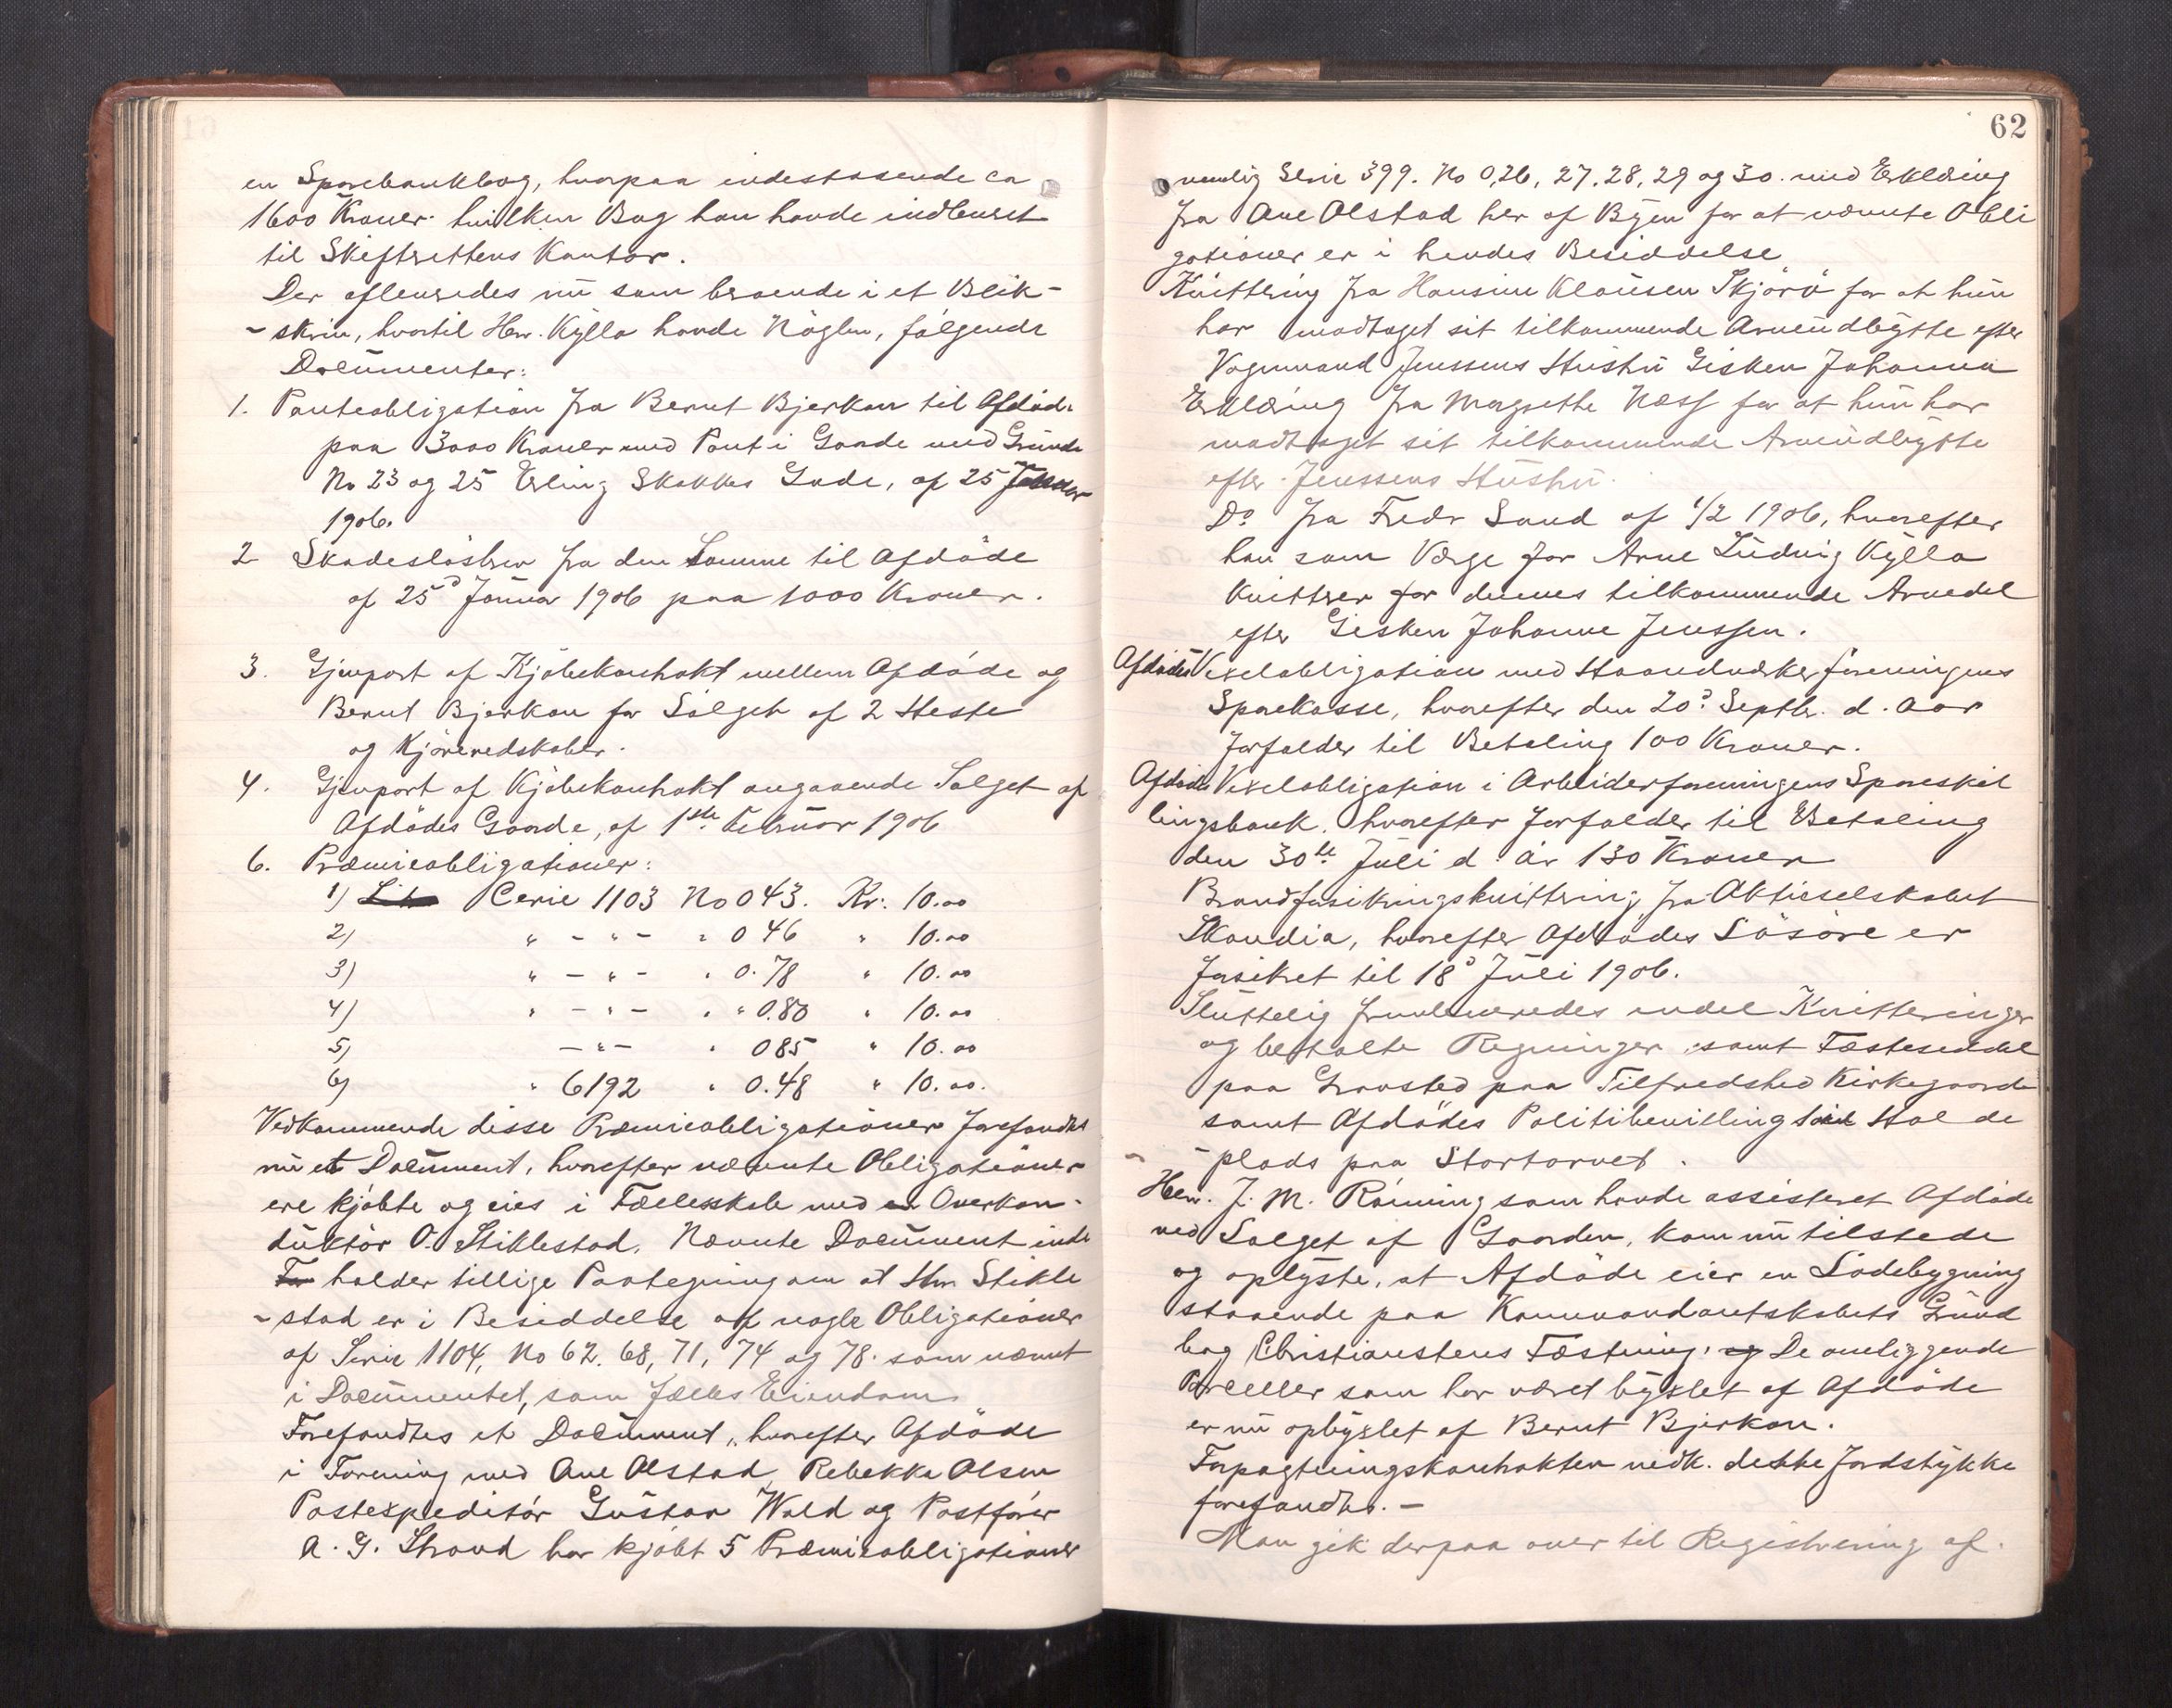 en Sparebankbog, hvorpaa indestaaende ca
1600 Kroner. hvilken Bog han havde indleveret
til Skifterettens Kontor.
Der afleveredes nu som beroende i et Blik-
- skrin, hvortil Herr. Kylla havde Nöglen, fölgende
Documenter:
1. Panteobligation fra Bernt Bjerkan til Afdöde
paa 3000 Kroner med Pant i Gaarde med Grunde
No 23 og 25 Erling Skakkes Gade, af 25 Januar
1906.
2 Skadeslösbrev fra den Samme til Afdöde
af 25d Januar 1906 paa 1000 Kroner.
3. Gjenpart af Kjöbekontrakt mellem Afdöde og
Bernt Bjerkan for Salget af 2 Heste
og Kjöreredskaber.
4. Gjenpart af Kjöbekontrakt angaaende Salget af
Afdödes Gaarde, af 1ste Februar 1906
6. Præmieobligationer:
1) Serie 1103 No 043. Kr: 10.00
2) " - " - " 046 " 10.00
3) " - " - " 0.78 " 10.00
4) " - " - " " 0.80 " 10.00
5) - " - " 085 " 10.00
6) " 6192 " 0.48 " 10.00.
Vedkommende disse Præmieobligationer forefandtes
nu et Document, hvorefter nævnte Obligationer
ere kjöbte og eies i Fælleskab med Overkon-
duktör O. Stiklestad. Nævnte Document inde
holder tillige Paategning om at Hrr Stikle
- stad er i Besiddelse af nogle Obligationer
af Serie 1104, No 62. 68, 71, 74 og 78. som nævnt
i Documentet, som fælles Eiendom
Forefandtes et Document, hvorefter Afdöde
i Forening med Ane Olstad, Rebekka Olsen
Postexpeditör Gustav Wold og Postförer
A. G. Strand har kjöbt 5 Præmieobligationer
62
nemlig Serie 399. No 0,26, 27, 28, 29 og 30. med Erklæring
fra Ane Olstad her af Byen for at nævnte Obli
gationer er i hendes Besiddelse
Kvittering fra Hansine Klausen Skjörö for at hun
har modtaget sit tilkommende Arveudbytte efter
Vognmand Jenssens Hustru Gisken Johanna
Erklæring fra Margrethe Næss for at hun har
modtaget sit tilkommende Arveudbytte
efter Jenssens Hustru.
Do fra Fredr Sand af 1/2 1906, hvorefter
han som Værge for Arne Ludvig Kylla
kvitterer for dennes tilkommende Arvedel
efter Gisken Johanne Jenssen.
Afdödes Vexelobligation med Haandværkerforeningens
Sparekasse, hvorefter den 20d Septbr. d. Aar
forfalder til Betaling 100 Kroner.
Afdödes Vexelobligation i Arbeiderforeningens Spareskil
lingsbank. hvorefter forfalder til Betaling
den 30te Juli d. Ar 130 Kroner
Brandforsikringskvittering fra Aktieselskabet
Skandia, hvorefter Afdödes Lösöre er
forsikret til 18d Juli 1906.
Sluttelig fremleveredes endel Kvitteringer
og betalte Regninger, samt Fæsteseddel
paa Gravsted paa Tilfredshed Kirkegaard
samt Afdödes Politibevilling til Holde
- plads paa Stortorvet.
Herr. J. M. Röining som havde assisteret Afdöde
ved Salget af Gaarden, kom nu tilstede
og oplyste, at Afdöde eier en Ladebygning
staaende paa Kommandantskabets Grund
bag Christianstens Fæstning. De omliggende
Parceller som har været bygslet af Afdöde
er nu opbygslet af Bernt Bjerkan.
Forpagtningskontrakten vedk. dette Jordstykke
forefandtes. -
Man gik derpaa over til Registrering af.